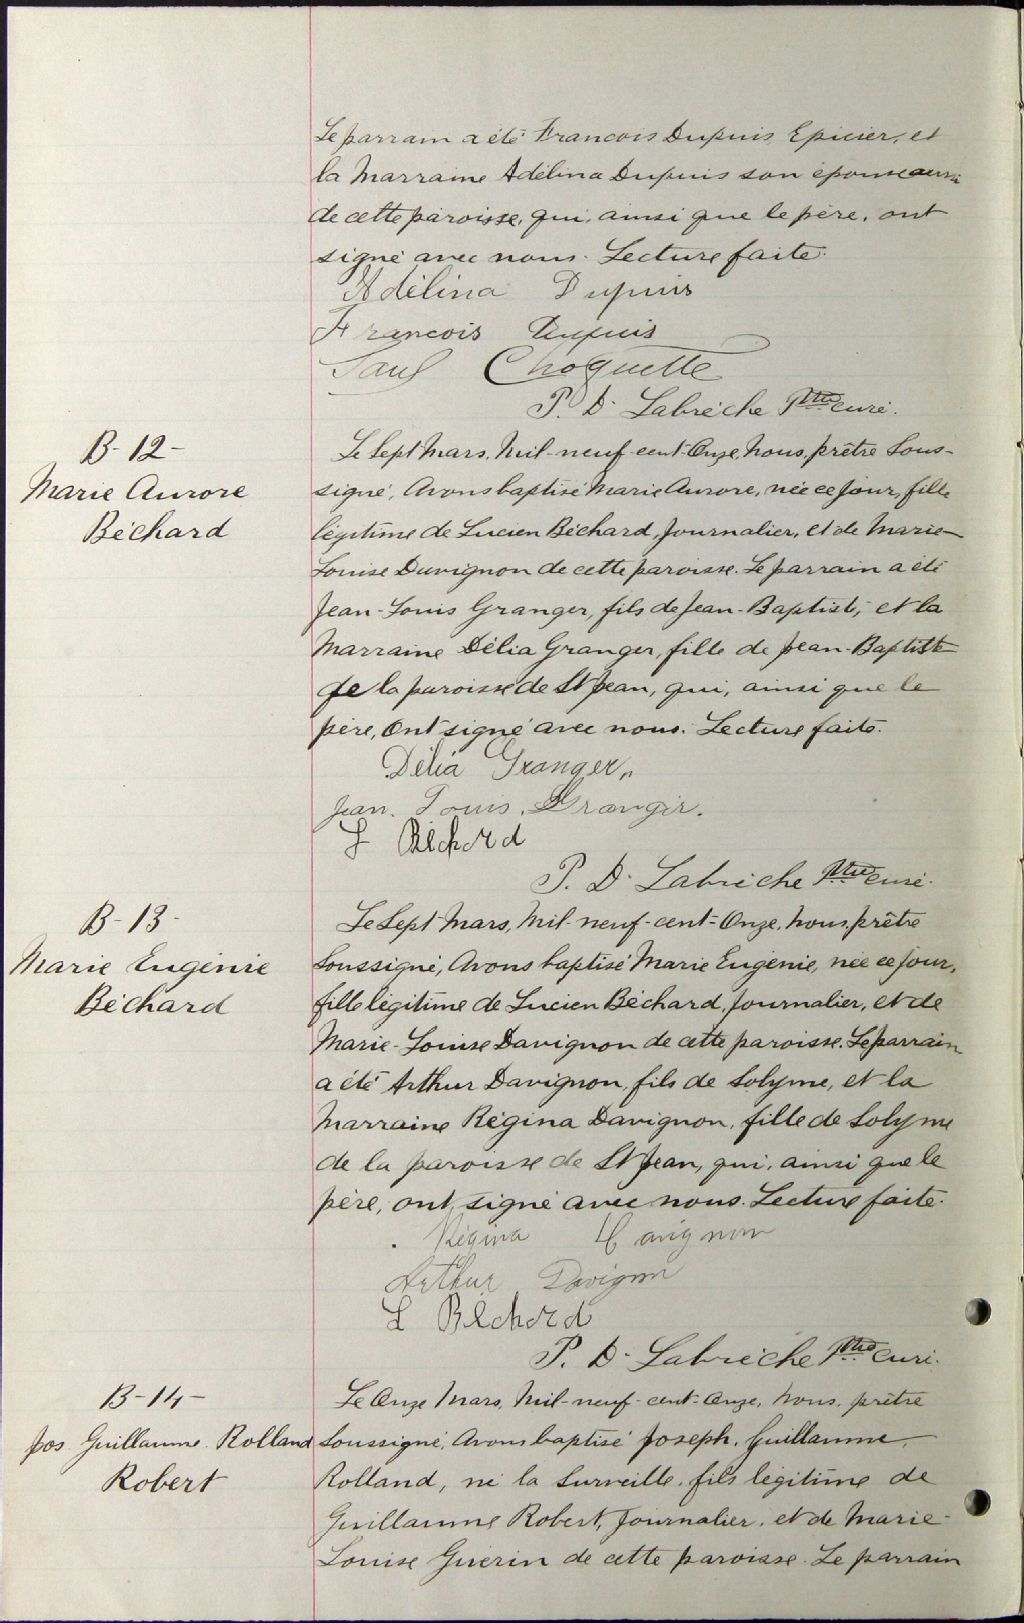 Le parrain a été Francois Dupuis, Epicier, et
la Marraine Adélina Dupuis son épouse aussi
de cette paroisse, qui, ainsi que le père, ont
signé avec nous. Lecture faite.
Adélina Dupuis
Francois Dupuis
Paul Choquette
P. D. Labrèche Ptre curé.
B-12-
Marie Aurore
Béchard
Le Sept Mars, Mil-neuf-cent-Onze, Nous, prêtre Sous-
signé, Avons baptisé Marie Aurore, née ce jour, fille
légitime de Lucien Béchard, Journalier, et de Marie-
Louise Davignon de cette paroisse. Le parrain a été
Jean-Louis Granger, fils de Jean-Baptiste, et la
Marraine Délia Granger, fille de Jean-Baptiste
de la paroisse de St Jean, qui, ainsi que le
père, Ont signé avec nous. Lecture faite.
Délia Granger
Jean. Louis. Grangir.
L Béchard
P. D. Labrèche Ptre curé.
B-13-
Marie Eugénie
Béchard
Le Sept Mars, Mil-neuf-cent-Onze, Nous, prêtre
Soussigné, Avons baptisé Marie Eugénie, née ce jour,
fille légitime de Lucien Béchard, Journalier, et de
Marie-Louise Davignon de cette paroisse. Le parrain
a été Arthur Davignon, fils de Solyme, et la
Marraine Régina Davignon, fille de Solyme
de la paroisse de St Jean, qui, ainsi que le
père, ont signé avec nous. Lecture faite.
Régina Davignon
Arthur Davignon
L Béchard
P. D. Labrèche Ptre curé.
B-14-
Jos. Guillaume. Rolland
Robert
Le Onze Mars, Mil-neuf-cent-Onze, Nous, prêtre
Soussigné, Avons baptisé Joseph. Guillaume.
Rolland, né la Surveille, fils légitime de
Guillaume Robert, Journalier, et de Marie-
Louise Guérin de cette paroisse. Le parrain